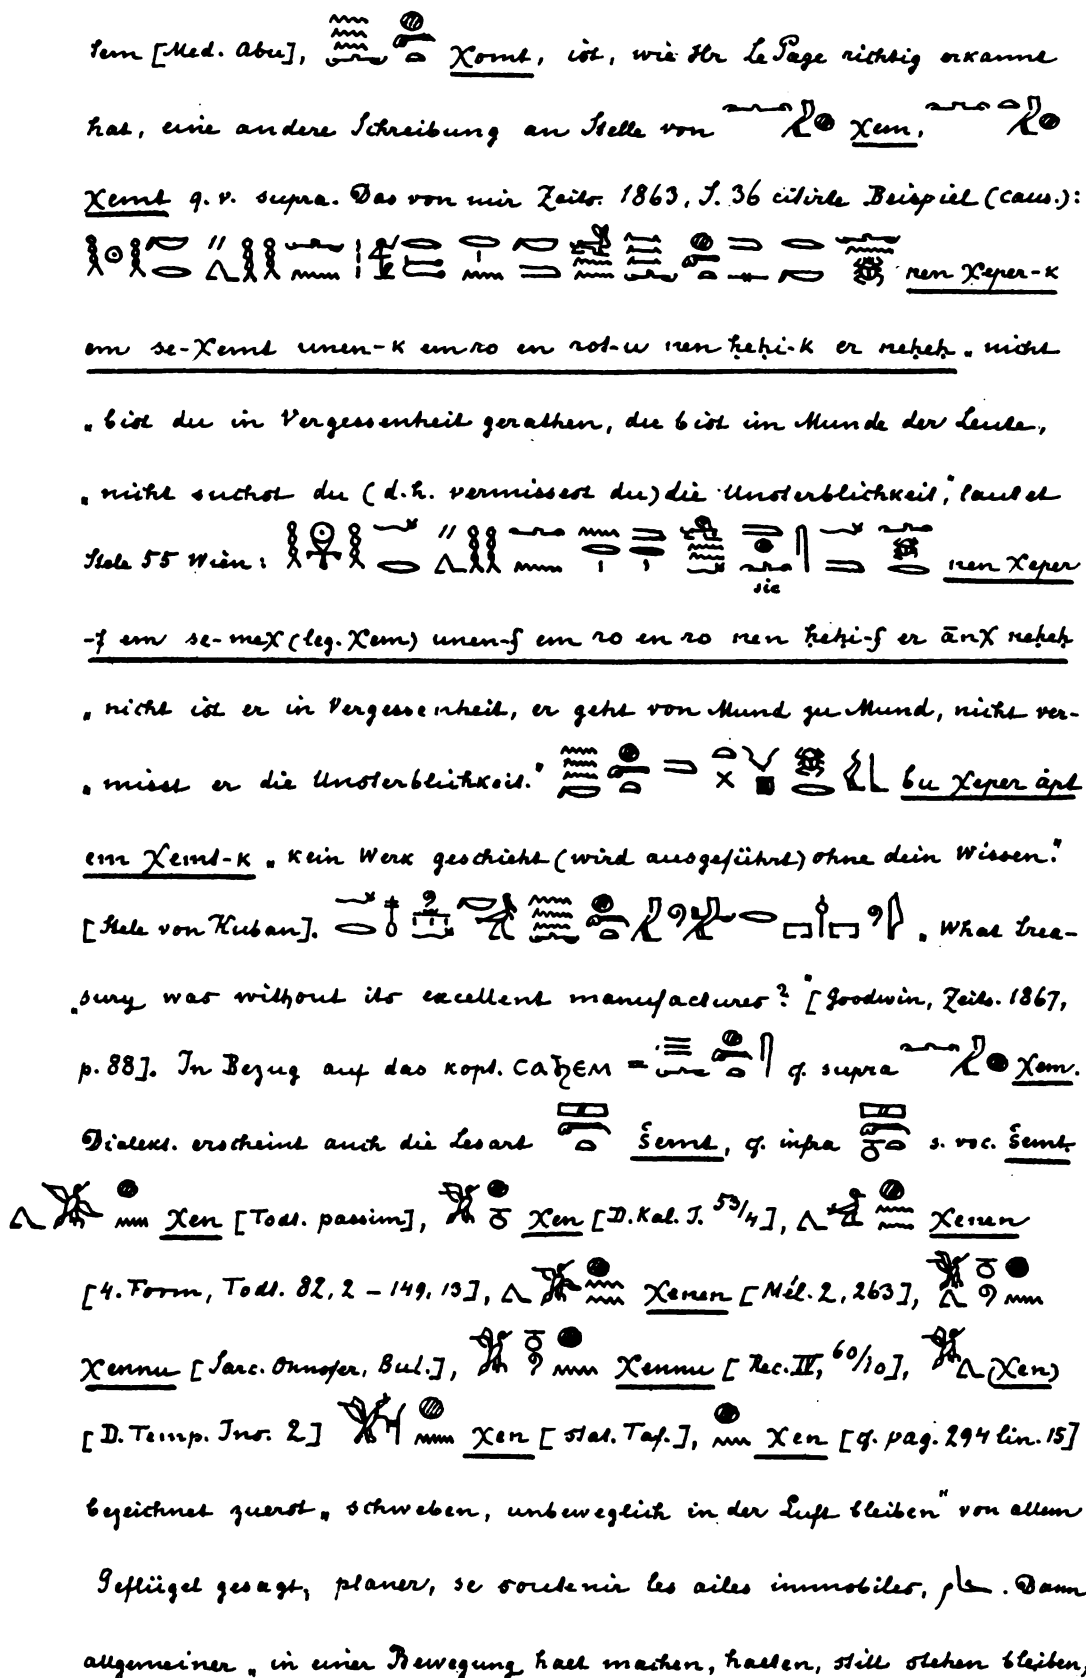 Sem [Med. Abu], χomt, ist, wie Hr Le Page richtig erkannt
hat, eine andere Schreibung an Stelle von χem,
χemt q. v. supra. Das von mir Zeits. 1863, S. 36 citirte Beispiel (caus.):
nen χeper-k
em se-χemt unen-k em ro en rot-u nen ḥeḥi-k er neḥeḥ „nicht
„bist du in Vergessenheit gerathen, du bist im Munde der Leute,
„nicht suchst du (d.h. vermissest du) die Unsterblichkeit", lautet
Stele 55 Wien: sic nen χeper
-f em se-meχ (leg. χem) unen-f em ro en ro nen ḥeḥi-f er ānχ neḥeḥ
„nicht ist er in Vergessenheit, er geht von Mund zu Mund, nicht ver-
„misst er die Unsterblichkeit." bu χeper āpt
em χemt-k „kein Werk geschieht (wird ausgeführt) ohne dein Wissen."
[Stele von Kuban]. „What trea-
„sury was without its excellent manufactures?" [Goodwin, Zeits. 1867,
p. 88]. In Bezug auf das kopt. ϹⲀϦⲈⲘ = cf. supra χem.
Dialekt. erscheint auch die Lesart šemt, cf. infra s. voc. šemt
χen [Todt. passim], χen [D. Kal. J. 53/4], χenen
[4. Form, Todt. 82, 2 – 149, 13], χenen [Mél. 2, 263],
χennu [Sarc. Onnofer, Bul.], χennu [Rec. IV, 60/10], (χen)
[D. Temp. Ins. 2] χen [stat. Taf.], χen [cf. pag. 294 lin. 15]
bezeichnet zuerst „schweben, unbeweglich in der Luft bleiben" von allem
Geflügel gesagt, planer, se soutenir les ailes immobiles, حام. Dann
allgemeiner „in einer Bewegung halt machen, halten, still stehen bleiben,